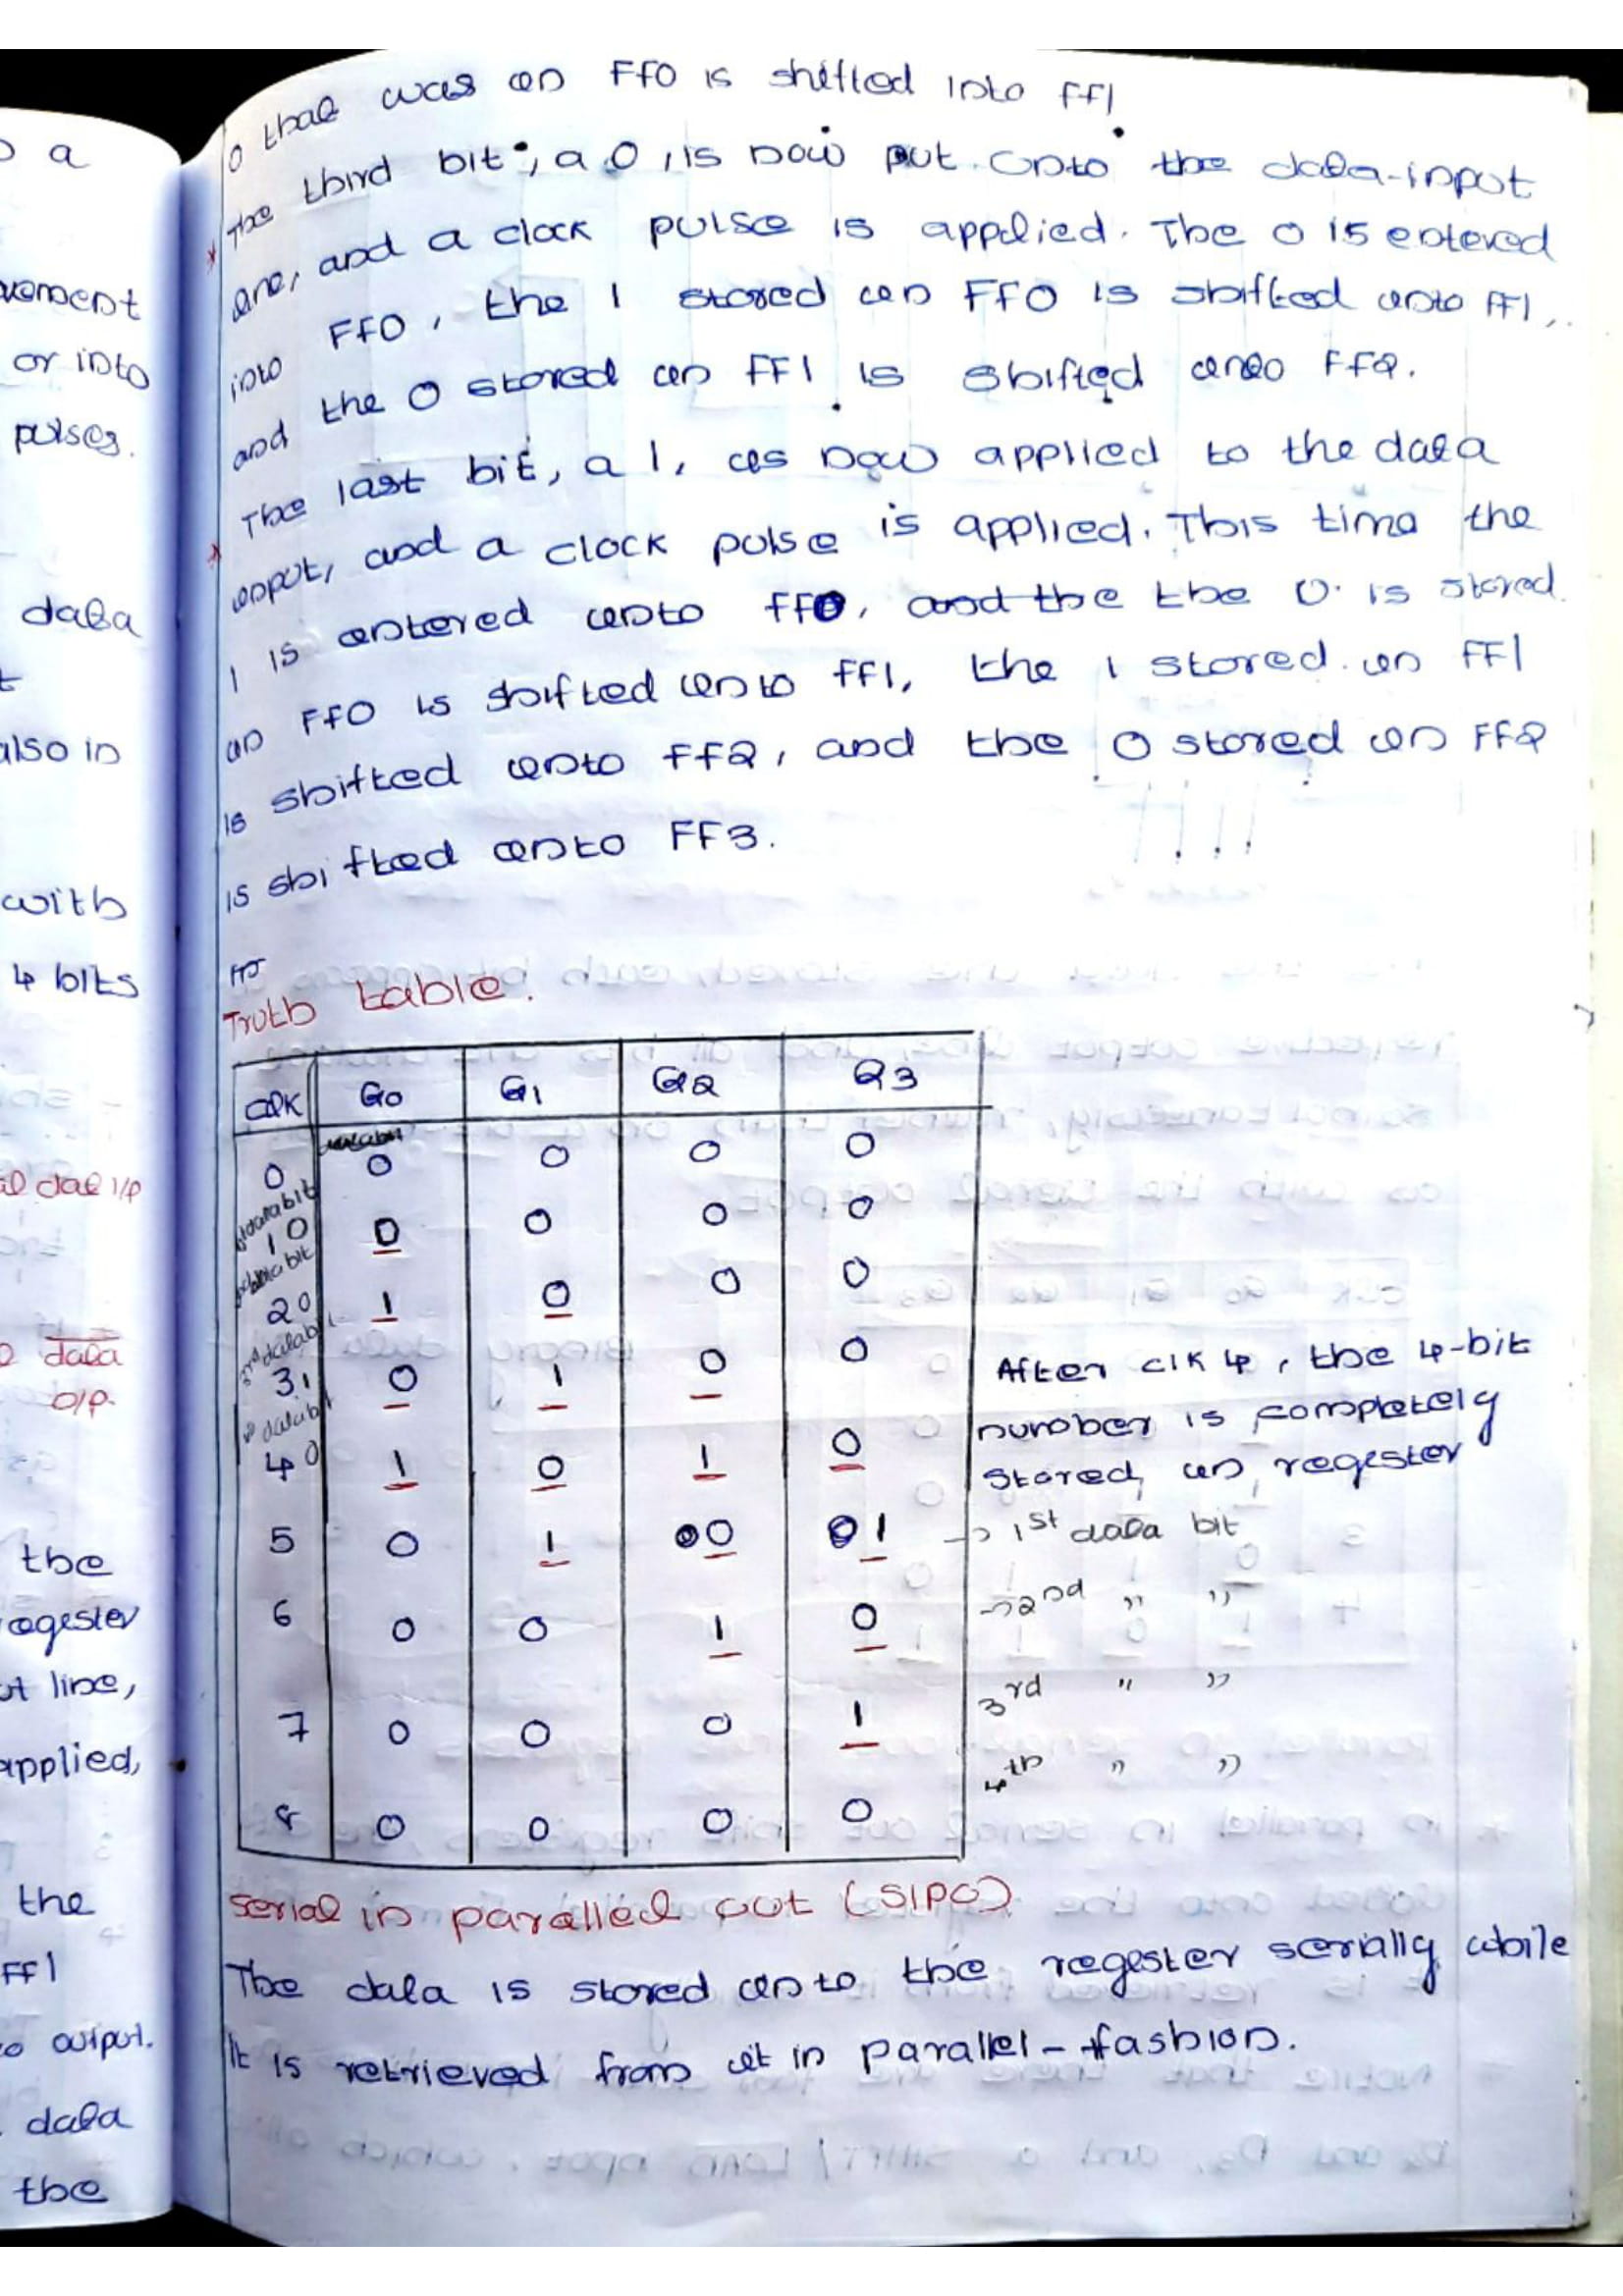 a
vement
or into
pulses.
data
t
also in
with
4 bits
dat i/p
data
o/p.
the
regester
ut line,
applied,
the
FF1
to output.
data
the
0 that was in FF0 is shifted into FF1
* The third bit, a 0, is now put. onto the data-input
line, and a clock pulse is applied. The 0 is entered
into FF0, the 1 stored in FF0 is shifted into FF1,
and the 0 stored in FF1 is shifted into FF2.
* The last bit, a 1, is now applied to the data
input, and a clock pulse is applied. This time the
1 is entered into FF0, and the the 0. is stored
in FF0 is shifted into FF1, the 1 stored. in FF1
is shifted into FF2, and the 0 stored in FF2
is shifted into FF3.
Truth table.
CLK Q0 Q1 Q2 Q3
0 0 0 0 0
data bit
1 0 0 0 0 0
data bit
2 0 1 0 0 0
3rd databit
3 1 0 1 0 0 After clk 4, the 4-bit
databit number is completely
4 0 1 0 1 0 stored, in regester
5 0 1 0 1 → 1st data bit
6 0 0 1 0 → 2nd " "
7 0 0 0 1 3rd " "
8 0 0 0 0 4th " "
Serial in paralled out (SIPO)
The data is stored into the regester serially while
it is retrieved from it in parallel-fashion.